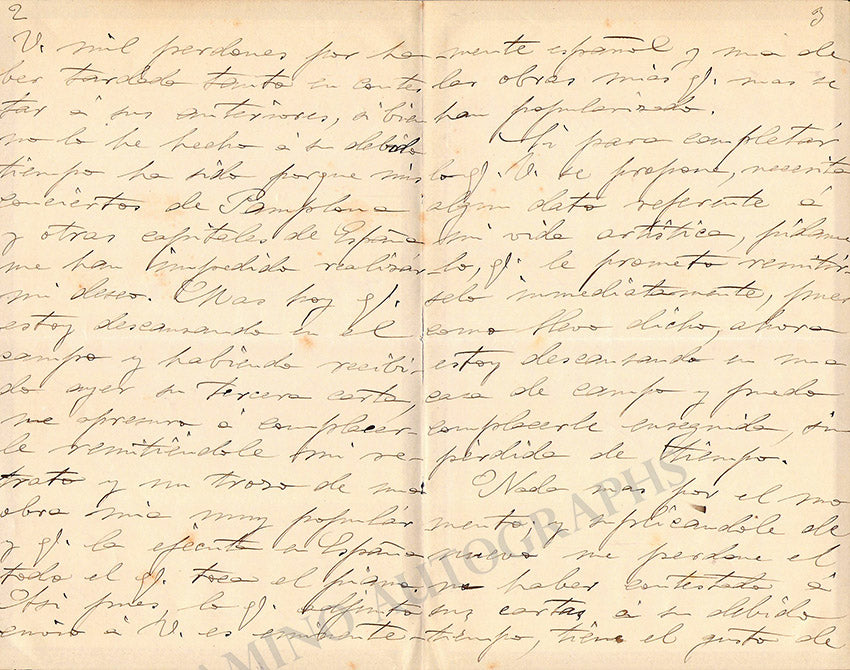 2
V. mil perdones por ha-
ber tardado tanto en contes
tar á sus anteriores, si bien
no lo he hecho á su debido
tiempo ha sido porque mis
conciertos de Pamplona
y otras capitales de España
me han impedido realizár
mi deseo. Mas hoy q.
estoy descansando en el
campo y habiendo recibi-
do ayer su tercera carta,
me apresuro á complacer-
le remitiéndole mi re-
trato y un troso de una
obra mia muy populár
y q. la ejecuta en España
todo el q. toca el piano.
Asi pues, lo q. adjunto
envio á V. es eminente-
3
-mente español y una de
las obras mias q. mas se
han popularizado.
Si para completár
lo q. V. se propone, necesita
algun dato referente á
mi vida artística, pídame
lo, q. le prometo remitir-
selo inmediatamente, pues
como llevo dicho, ahora
estoy descansando en una
casa de campo y puedo
complacerle enseguida, sin
pérdida de tiempo.
Nada mas por el mo
mento, y suplicandole de
nuevo me perdone el
no haber contestado á
sus cartas á su debido
tiempo, tiene el gusto de
TAMINO AUTOGRAPHS